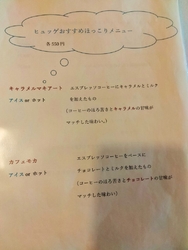 ヒュッゲおすすめほっこりメニュー
各550円
キャラメルマキアート
エスプレッソコーヒーにキャラメルとミルク
アイス or ホット
を加えたもの
（コーヒーのほろ苦さとキャラメルの甘味が
マッチした味わい。）
カフェモカ
エスプレッソコーヒーをベースに
アイス or ホット
チョコレートとミルクを加えたもの
（コーヒーのほろ苦さとチョコレートの甘味が
マッチした味わい）